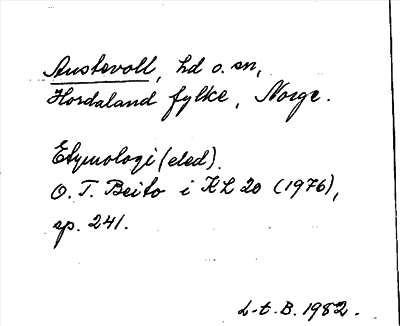 Austevoll, hd o. sn,
Hordaland fylke, Norge.
Etymologi (eled).
O. T. Beito i KL 20 (1976),
sp. 241.
L-t. B. 1982.